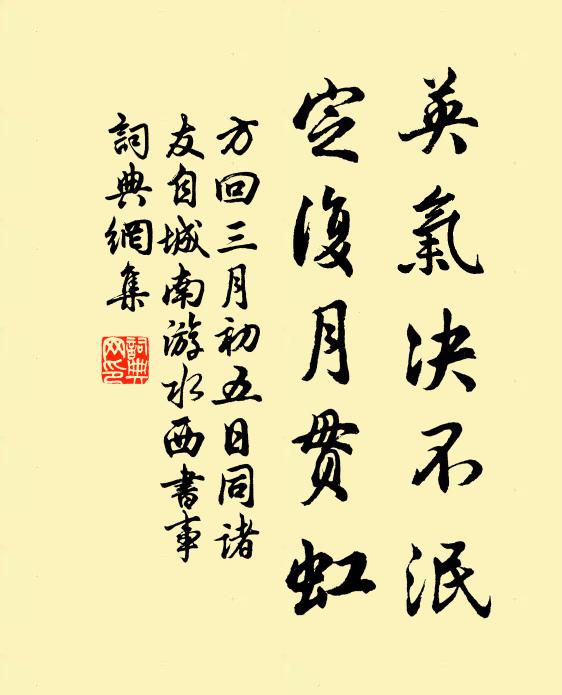 英氣決不泯
定復月貫虹
方回三月初五日同諸
友自城南游水西書事
詞典網集
詞典網印